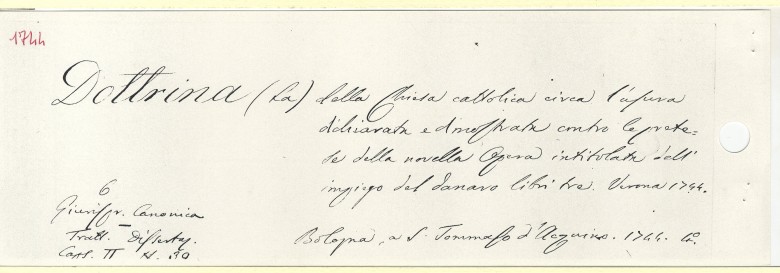 1744
Dottrina (La) della Chiesa cattolica circa l'usura
dichiarata e dimostrata contro le prete=
se della novella Opera intitolata dell'
impiego del danaro libri tre. Verona 1744.
Bologna, a S. Tommaso d'Acquino. 1744. 4º.
6
Giurispr. Canonica
Tratt. Dissertaz.
Caps. II N. 30